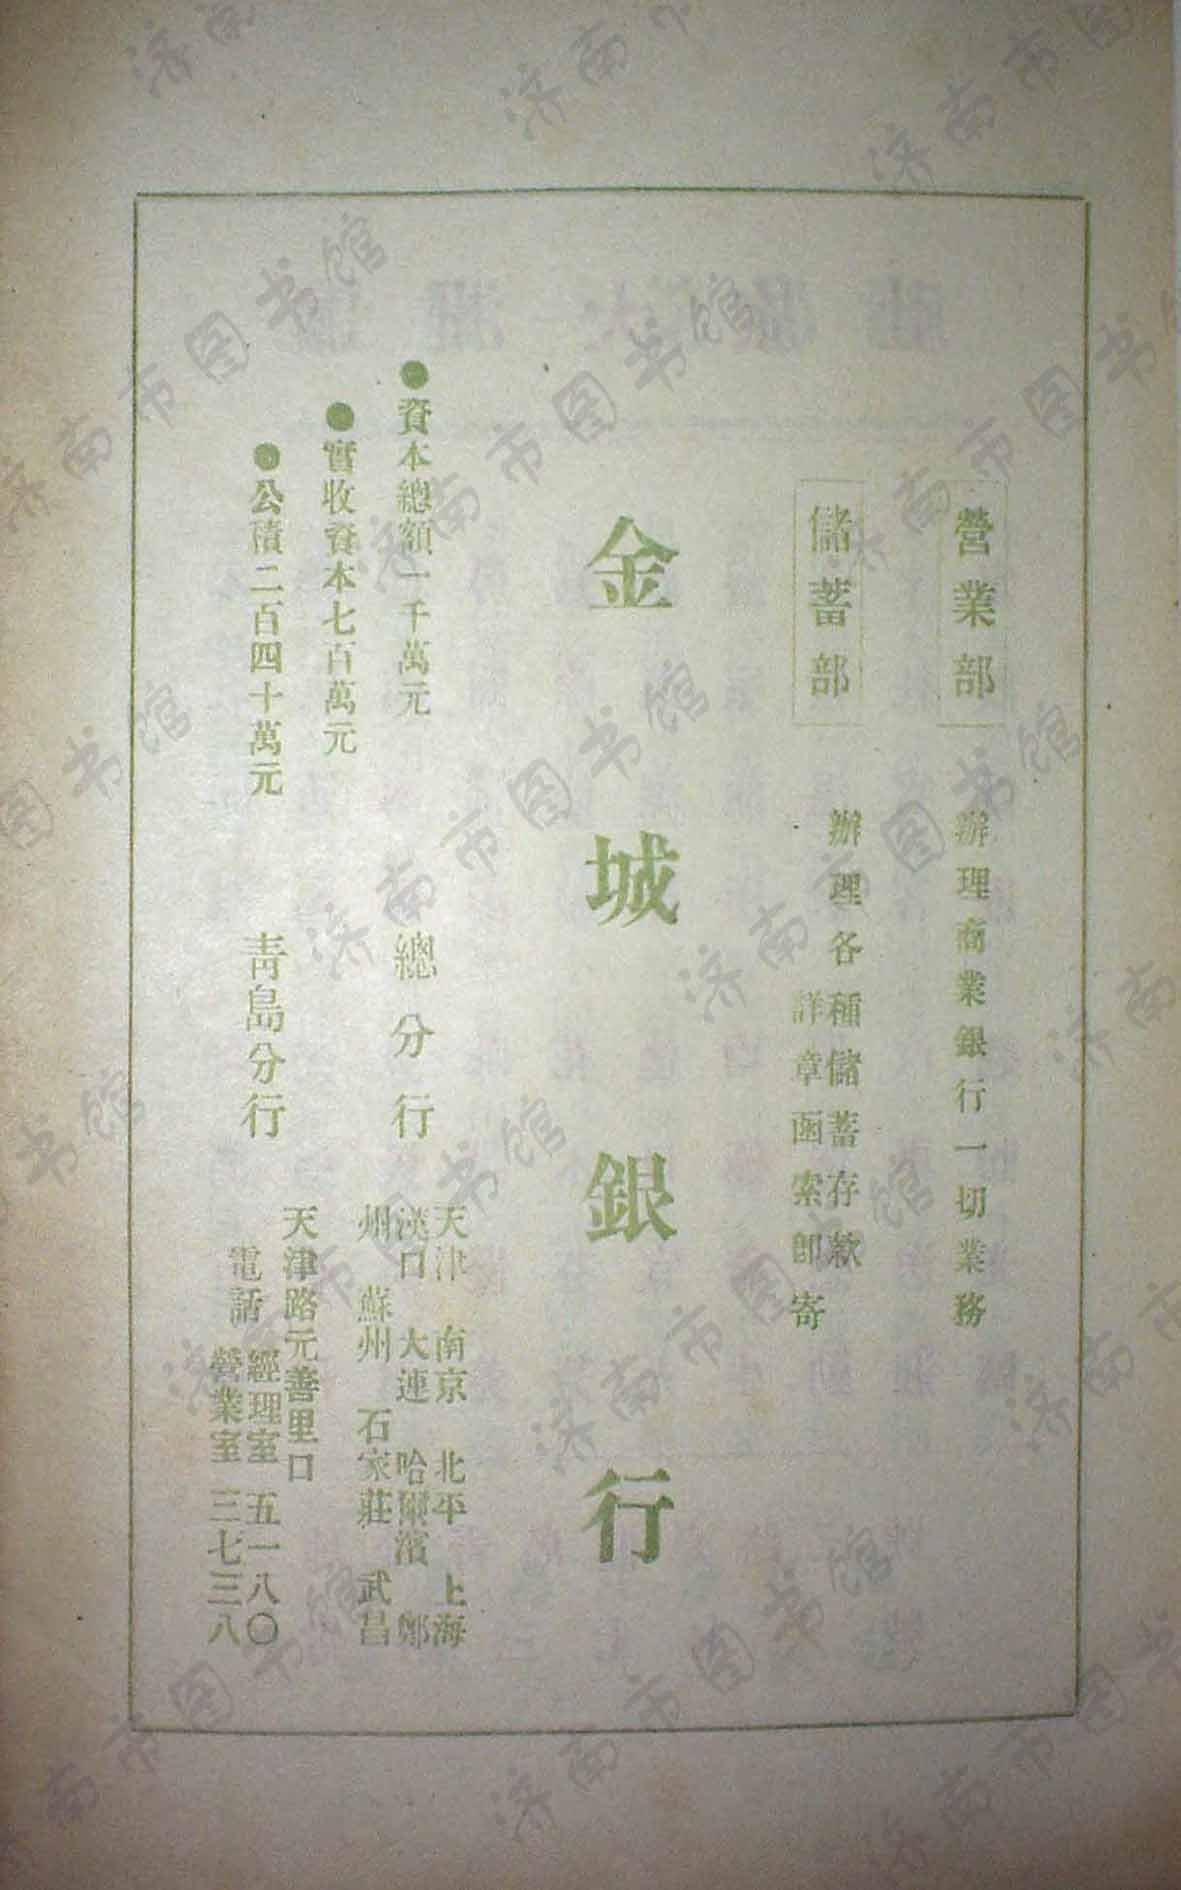 營業部
辦理商業銀行一切業務
儲蓄部
辦理各種儲蓄存款
詳章函索即寄
金城銀行
●資本總額一千萬元
●實收資本七百萬元
●公積二百四十萬元
總分行
天津 南京 北平 上海
漢口 大連 哈爾濱 鄭
州 蘇州 石家莊 武昌
青島分行
天津路元善里口
電話
經理室 五一八〇
營業室 三七三八
济南市图书馆